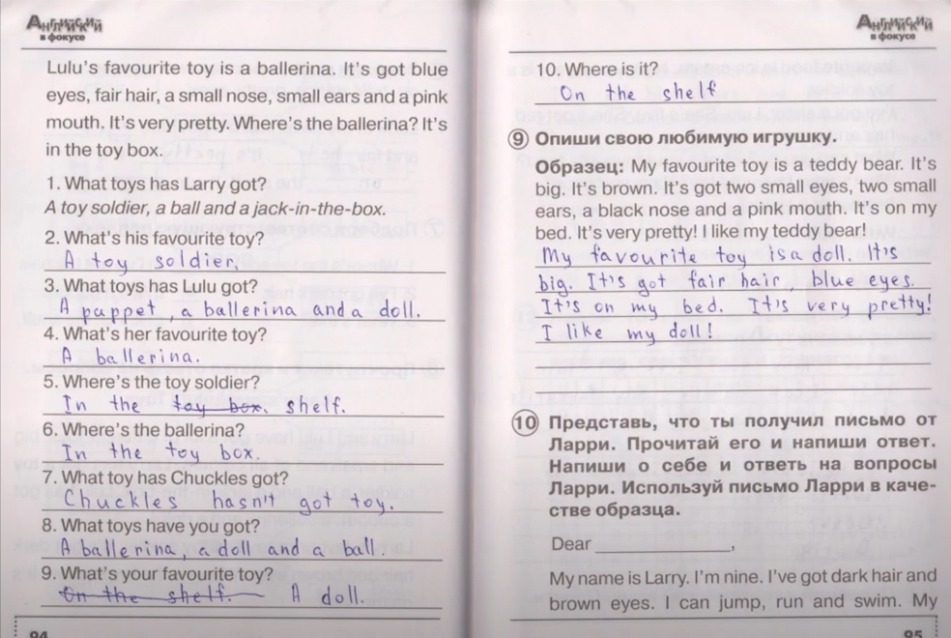 Английский
в фокусе
Lulu's favourite toy is a ballerina. It's got blue
eyes, fair hair, a small nose, small ears and a pink
mouth. It's very pretty. Where's the ballerina? It's
in the toy box.
1. What toys has Larry got?
A toy soldier, a ball and a jack-in-the-box.
2. What's his favourite toy?
A toy soldier.
3. What toys has Lulu got?
A puppet, a ballerina and a doll.
4. What's her favourite toy?
A ballerina.
5. Where's the toy soldier?
In the toy box. shelf.
6. Where's the ballerina?
In the toy box.
7. What toy has Chuckles got?
Chuckles hasn't got toy.
8. What toys have you got?
A ballerina, a doll and a ball.
9. What's your favourite toy?
On the shelf. A doll.
94
Английский
в фокусе
10. Where is it?
On the shelf
9 Опиши свою любимую игрушку.
Образец: My favourite toy is a teddy bear. It's
big. It's brown. It's got two small eyes, two small
ears, a black nose and a pink mouth. It's on my
bed. It's very pretty! I like my teddy bear!
My favourite toy is a doll. It's
big. It's got fair hair, blue eyes.
It's on my bed. It's very pretty!
I like my doll!
10 Представь, что ты получил письмо от
Ларри. Прочитай его и напиши ответ.
Напиши о себе и ответь на вопросы
Ларри. Используй письмо Ларри в каче-
стве образца.
Dear ____________,
My name is Larry. I'm nine. I've got dark hair and
brown eyes. I can jump, run and swim. My
95